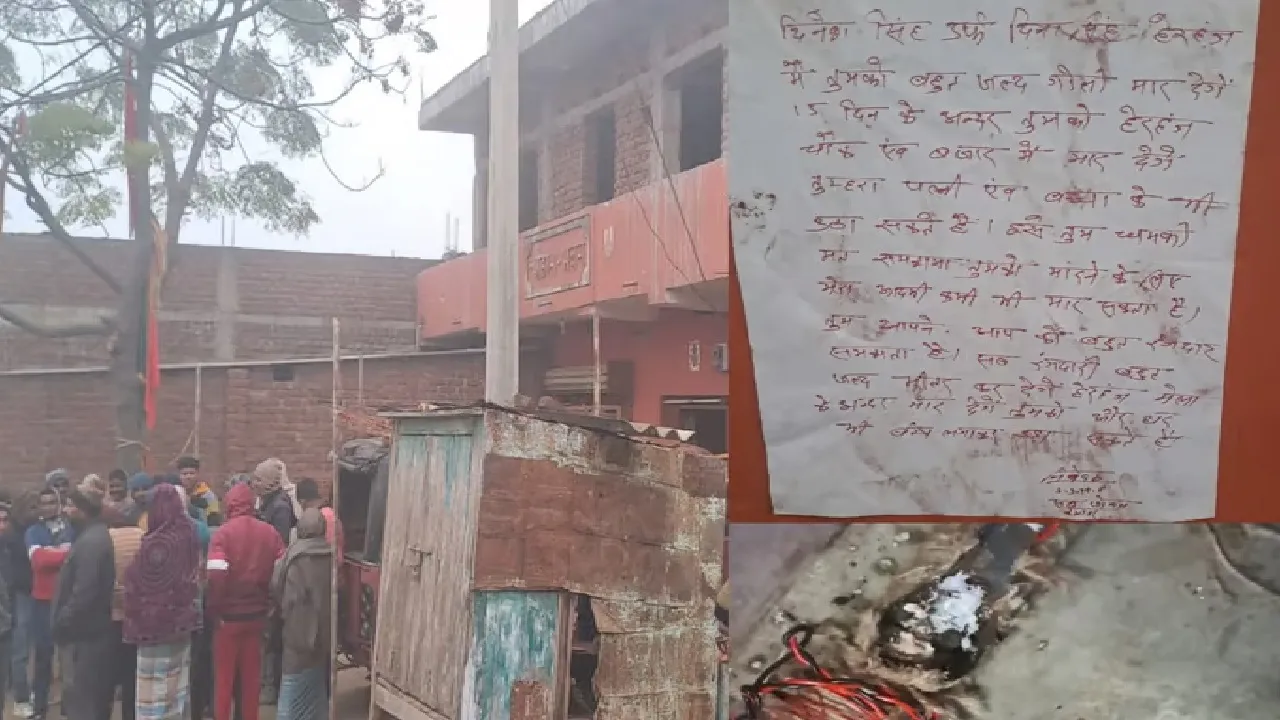 दिनेश सिंह उर्फ दिना सिंह हेरहंज
मैं तुमको बहुत जल्द गोली मार देगें
15 दिन के अन्दर तुमको हेरहंज
चौक एंव बजार में मार देगें
तुम्हरा पत्नी एंव बच्चा के भी
उठा सकते है। इसे तुम धमकी
मत समझना तुमको मारने के लिए
मेरा आदमी कभी भी मार सकता है,
तुम आपने आप को बहुत रंगदार
समझता है। सब रंगदारी बहुत
जल्द भीतर कर देगें हेरहंज मेला
के अन्दर मार देगें तुमको और घर
भी बंम लगाकर उड़ा सकते है